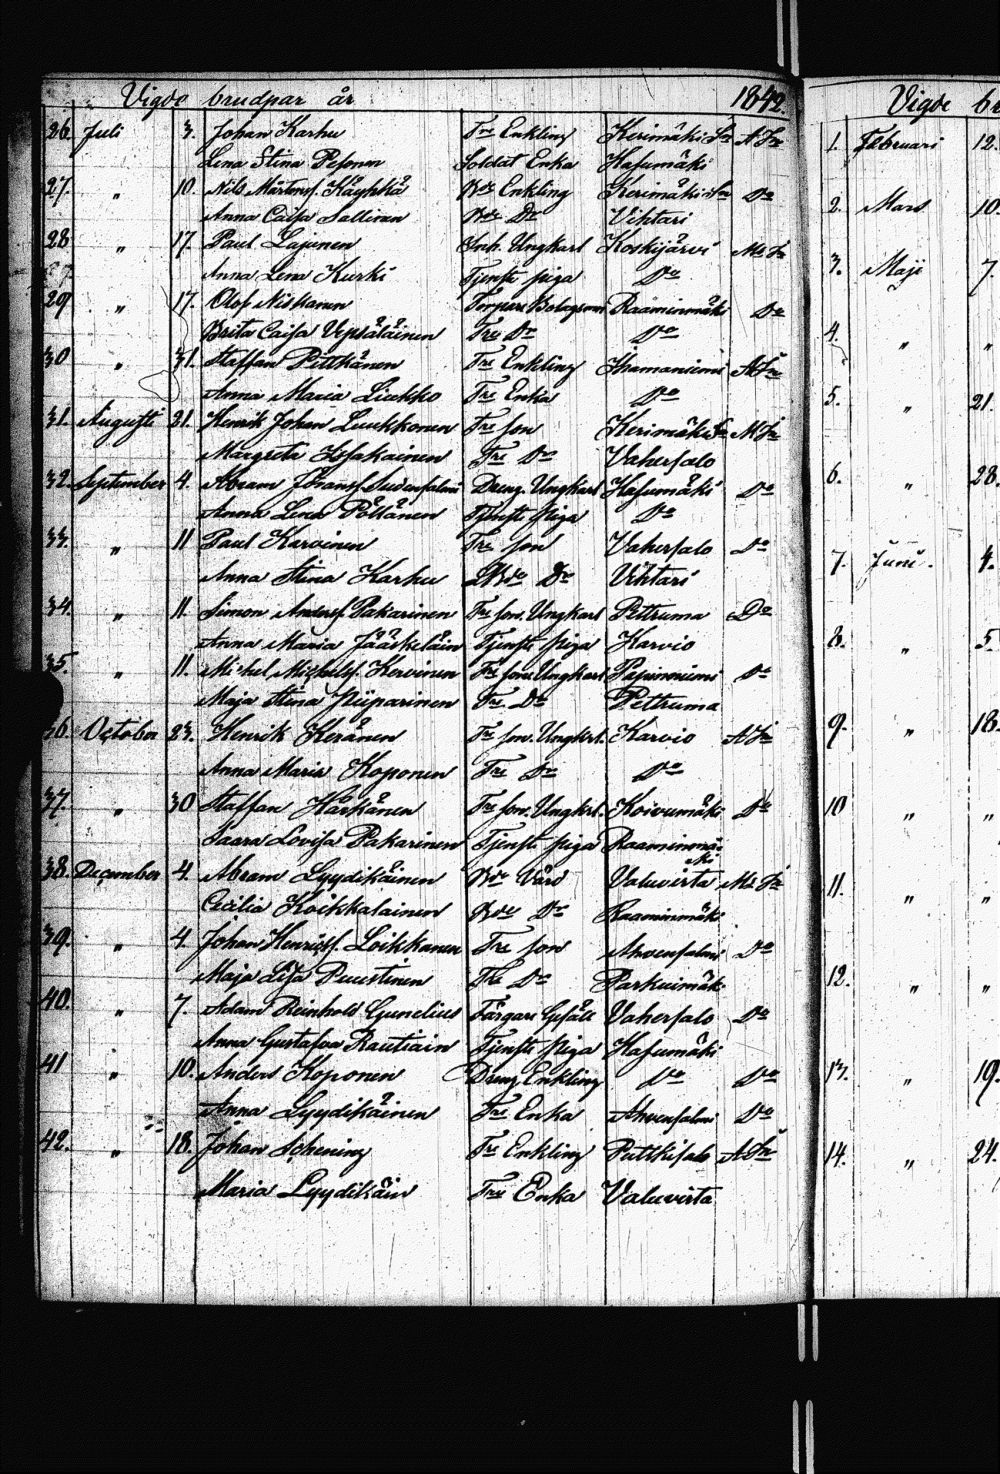 Vigde brudpar år 1842.
26. Juli 3. Johan Karhu Tre Enkling Kerimäki Sn A Fr
Lena Stina Pesonen Soldat Enka Hasumäki
27. " 10. Nils Mårtensf. Käyhkö Bde Enkling Kerimäki Sn Do
Anna Caisa Sallinen Bde Dr Vihtari
28 " 17. Paul Lajunen Inh. Ungkarl Koskijärvi Mr Fr
Anna Lena Kurki Tjenste piga Do
29 " 17. Olof Niskanen Torpare Raaminmäki Do
Brita Caisa Vepsäläinen Tre Dr Do
30 " 31. Staffan Pittkänen Tre Enkling Ihamaniemi A Fr
Anna Maria Liukko Tre Enka Do
31. Augusti 21. Henrik Johan Luukkonen Tre son Kerimäki Sn M Fr
Margreta Issakainen Tre Dr Vahersalo
32. September 4. Abram Dreng Ungkarl Hasumäki Do
Anna Lena Pöllänen Tjenste Piga Do
33. " 11 Paul Karvinen Tre son Vahersalo Do
Anna Stina Karhu Bde Dr Vihtari
34. " 11. Simon Andersf. Pakarinen Tre son Ungkarl Pettruma Do
Anna Maria Jääskeläin Tjenste Piga Karvio
35. " 11. Michel Michelsf. Kervinen Tre son Ungkarl Papinniemi Do
Maja Stina Piiparinen Tre Dr Pettruma
36. October 23. Henrik Keränen Tre son Ungkrl. Karvio A Fr
Anna Maria Koponen Tre Dr Do
37. " 30 Staffan Härkänen Tre son Ungkrl. Koivumäki Do
Saara Lovisa Pakarinen Tjenste piga Raaminmä-
ki
38. December 4. Abram Lyydikäinen Bde Värd Valuvirta Mr Fr
Cecilia Koikkalainen Bde Dr Raaminmäki
39. " 4. Johan Henriksf. Loikkanen Tre son Ahvensalmi Do
Maja Lisa Puustinen Tre Dr Parkuimäki
40. " 7. Adam Reinhold Gunelius Färgare Gesäll Vahersalo Do
Anna Gustafva Rautiain Tjenste Piga Hasumäki
41 " 10. Anders Koponen Dreng Enkling Do Do
Anna Lyydikäinen Tre Enka Ahvensalmi Do
42. " 18. Johan Schening Tre Enkling Puttkisalo A Fr
Maria Lyydikäin Tre Enka Valuvirta
Vigde br
1. Februari 12.
2. Mars 10.
3. Maji 7.
4. " "
5. " 21.
6. " 28.
7. Juni. 4.
8. " 5
9. " 18.
10 " "
11. " "
12. " "
13. " 19.
14. " 24.